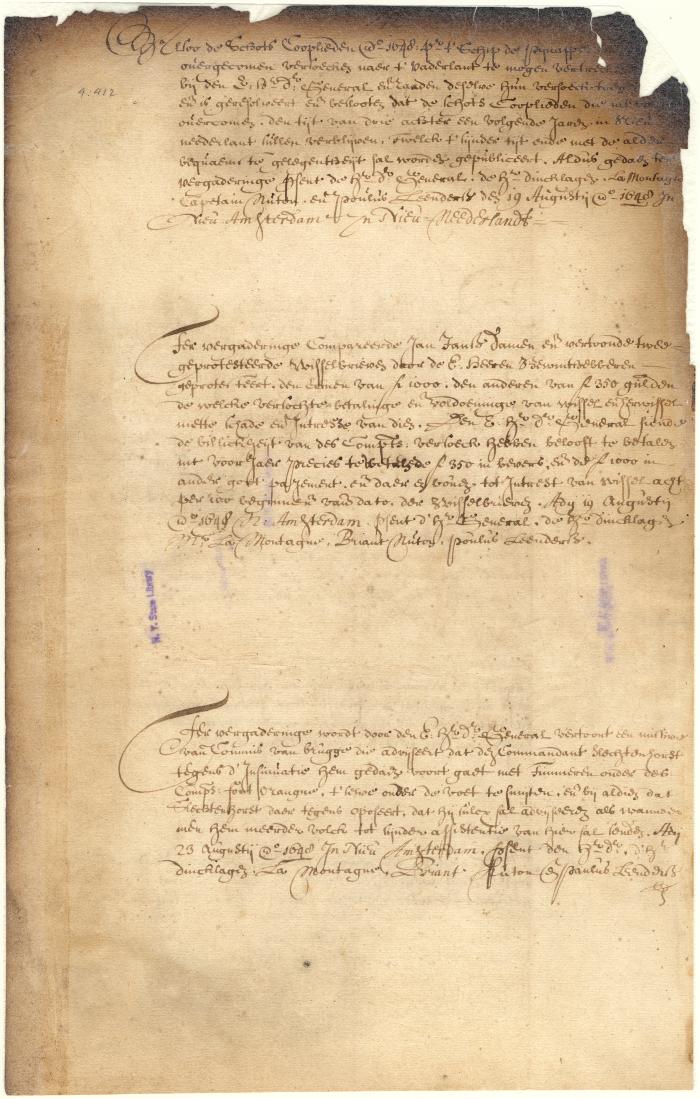 Alsoo de Schots Cooplieden Ao 1648 pr t' Schip de
overgecomen versoecken naer t' vaderlant te mogen vertrecken
bij den E. Hr. Dr. Generael en Raaden deselve hun versoeck
en is geresolveert en beslooten dat de Schots Cooplieden die
overcomen, den tijt van drie achter een volgende Jaren in Nieu
neederlant sullen verblijven, twelck t' sijnder tijt ende met de alder
bequaemste gelegentheijt sal worden gepubliceert. Aldus gedaen ter
vergaderinge psent de Hr. Dr. Generael, de Hr. Dincklagen, La Montagne
Capetain Nuton, en Poulus Leenderts den 19 Augustij Ao 1648 In
Nieu Amsterdam In Nieu Neederlandt
4:412
Ter vergaderinge Compareerde Jan Jansz Damen en vertoonde twee
geprotesteerde Wisselbrieven door de E. Heeren Bewinthebberen
geprotesteert, den eenen van f 1000, den anderen van f 350 gulden
de welcke versochte betalinge en voldoeninge van Wissel en herwissel
mette schade en Intresse van dien. Den E. Hr. Dr. Generael siende
de billickheijt van des Compts. versoeck heeven belooft te betalen
int voor Jaer precies te betalende f 350 in bevers, en de f 1000 in
ander goet pajement, en daer en boven tot Intrest van Wissel acht
per 100 beginnende van dato der Wisselbrieven. Adij 19 Augustij
Ao 1648 N. Amsterdam, psent d' Hr. Generael, de Hr. Dincklagen
Mr. La Montagne, Briant Nuton, Poulus Leenderts.
N. Y. State Library
Ter vergaderinge wordt door den E. Hr. Dr. Generael vertoont een missive
van Commis van Brugge die advijseert dat den Commandant Slechtenhorst
tegens d' Insinuatie hem gedaen voort gaet met Timmeren onder des
Comps. fort Orangne, t' selve onder de voet te smijten, en bij aldien dat
Slechtenhorst daer tegens oposeert, dat hij sulcx sal advijseren als wanneer
men hem meerder volck tot sijnder assistentie van hier sal senden. Adij
23 Augustij Ao 1648 In Nieu Amsterdam, psent den Hr. Dr. d' Hr.
Dincklagen, La Montagne, Briant Nuton en Paulus Leenderts